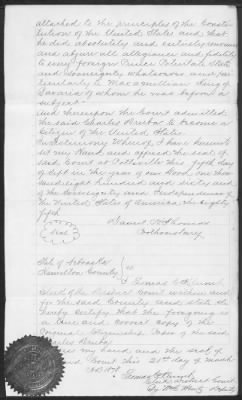 attached to the principles of the Consti-
tution of the United States and that
he did absolutely and entirely renounce
and abjure all allegiance and fidelity
to every foreign Prince Potentate State
and Sovereignty whatsoever and par-
ticularly to Maxamillian King of
Bavaria of whom he was before a
subject
And thereupon the Court admitted
the said Charles to become a
Citizen of the United States
In Testimony Whereof I have hereunto
set my Hand and affixed the seal of
said Court at Pottsville this fifth day
of Sept in the year of our Lord, one thou-
sand eight hundred and sixty and
of the Sovereignty and Independence of
the United States of America the eighty
fifth
Prothonotary
Seal
State of Nebraska
Hamilton County } ss
I Thomas
Clerk of the District Court within and
for the said County and state do
hereby certify that the foregoing is
a true and correct copy of the
Original Citizenship of the said
Charles
my hand and the seal of
Court this 21st day of March
AD 18
Thomas
Clerk District Court
By